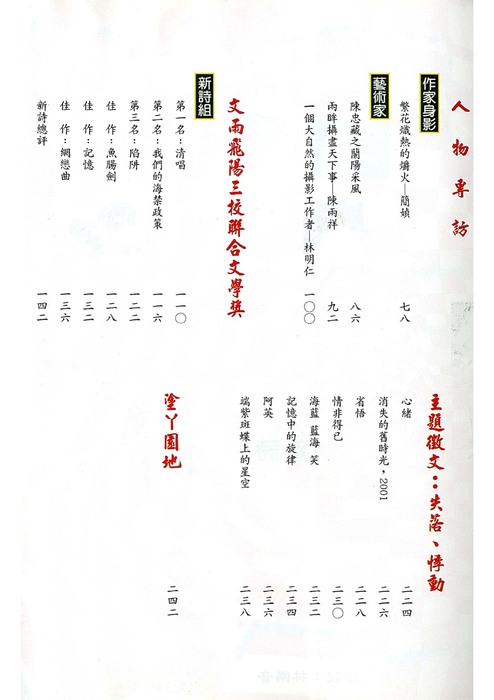 人物專訪
作家身影
繁花熾熱的爝火—簡媜 七八
藝術家
陳忠藏之蘭陽采風 八六
雨眸攝盡天下事—陳雨祥 九二
一個大自然的攝影工作者—林明仁 一〇〇
文雨飛陽三校聯合文學獎
新詩組
第一名：清唱 一一〇
第二名：我們的海禁政策 一一六
第三名：陷阱 一二二
佳 作：魚腸劍 一二八
佳 作：記憶 一三二
佳 作：網戀曲 一三六
新詩總評 一四二
主題徵文：失落、悸動
心緒 二二四
消失的舊時光，2001 二二六
省悟 二二八
情非得已 二三〇
海藍 藍海 笑 二三二
記憶中的旋律 二三四
阿英 二三六
端紫斑蝶上的星空 二三八
塗丫園地 二四二